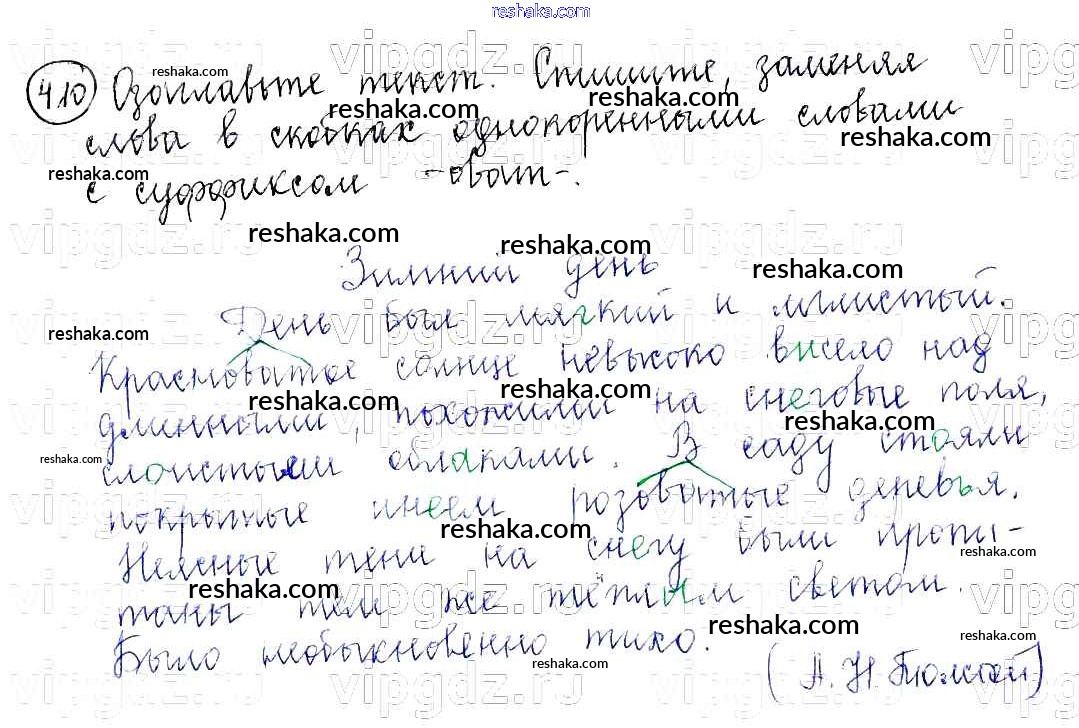 reshaka.com
410 Озаглавьте текст. Спишите, заменяя
слова в скобках однокоренными словами
с суффиксом -оват-.
Зимний день
День был мягкий и мглистый.
Красноватое солнце невысоко висело над
длинными, похожими на снеговые поля,
слоистыми облаками. В саду стояли
покрытые инеем розоватые деревья.
Неясные тени на снегу были пропи-
таны тем же тёплым светом.
Было необыкновенно тихо.
(А. Н. Толстой)